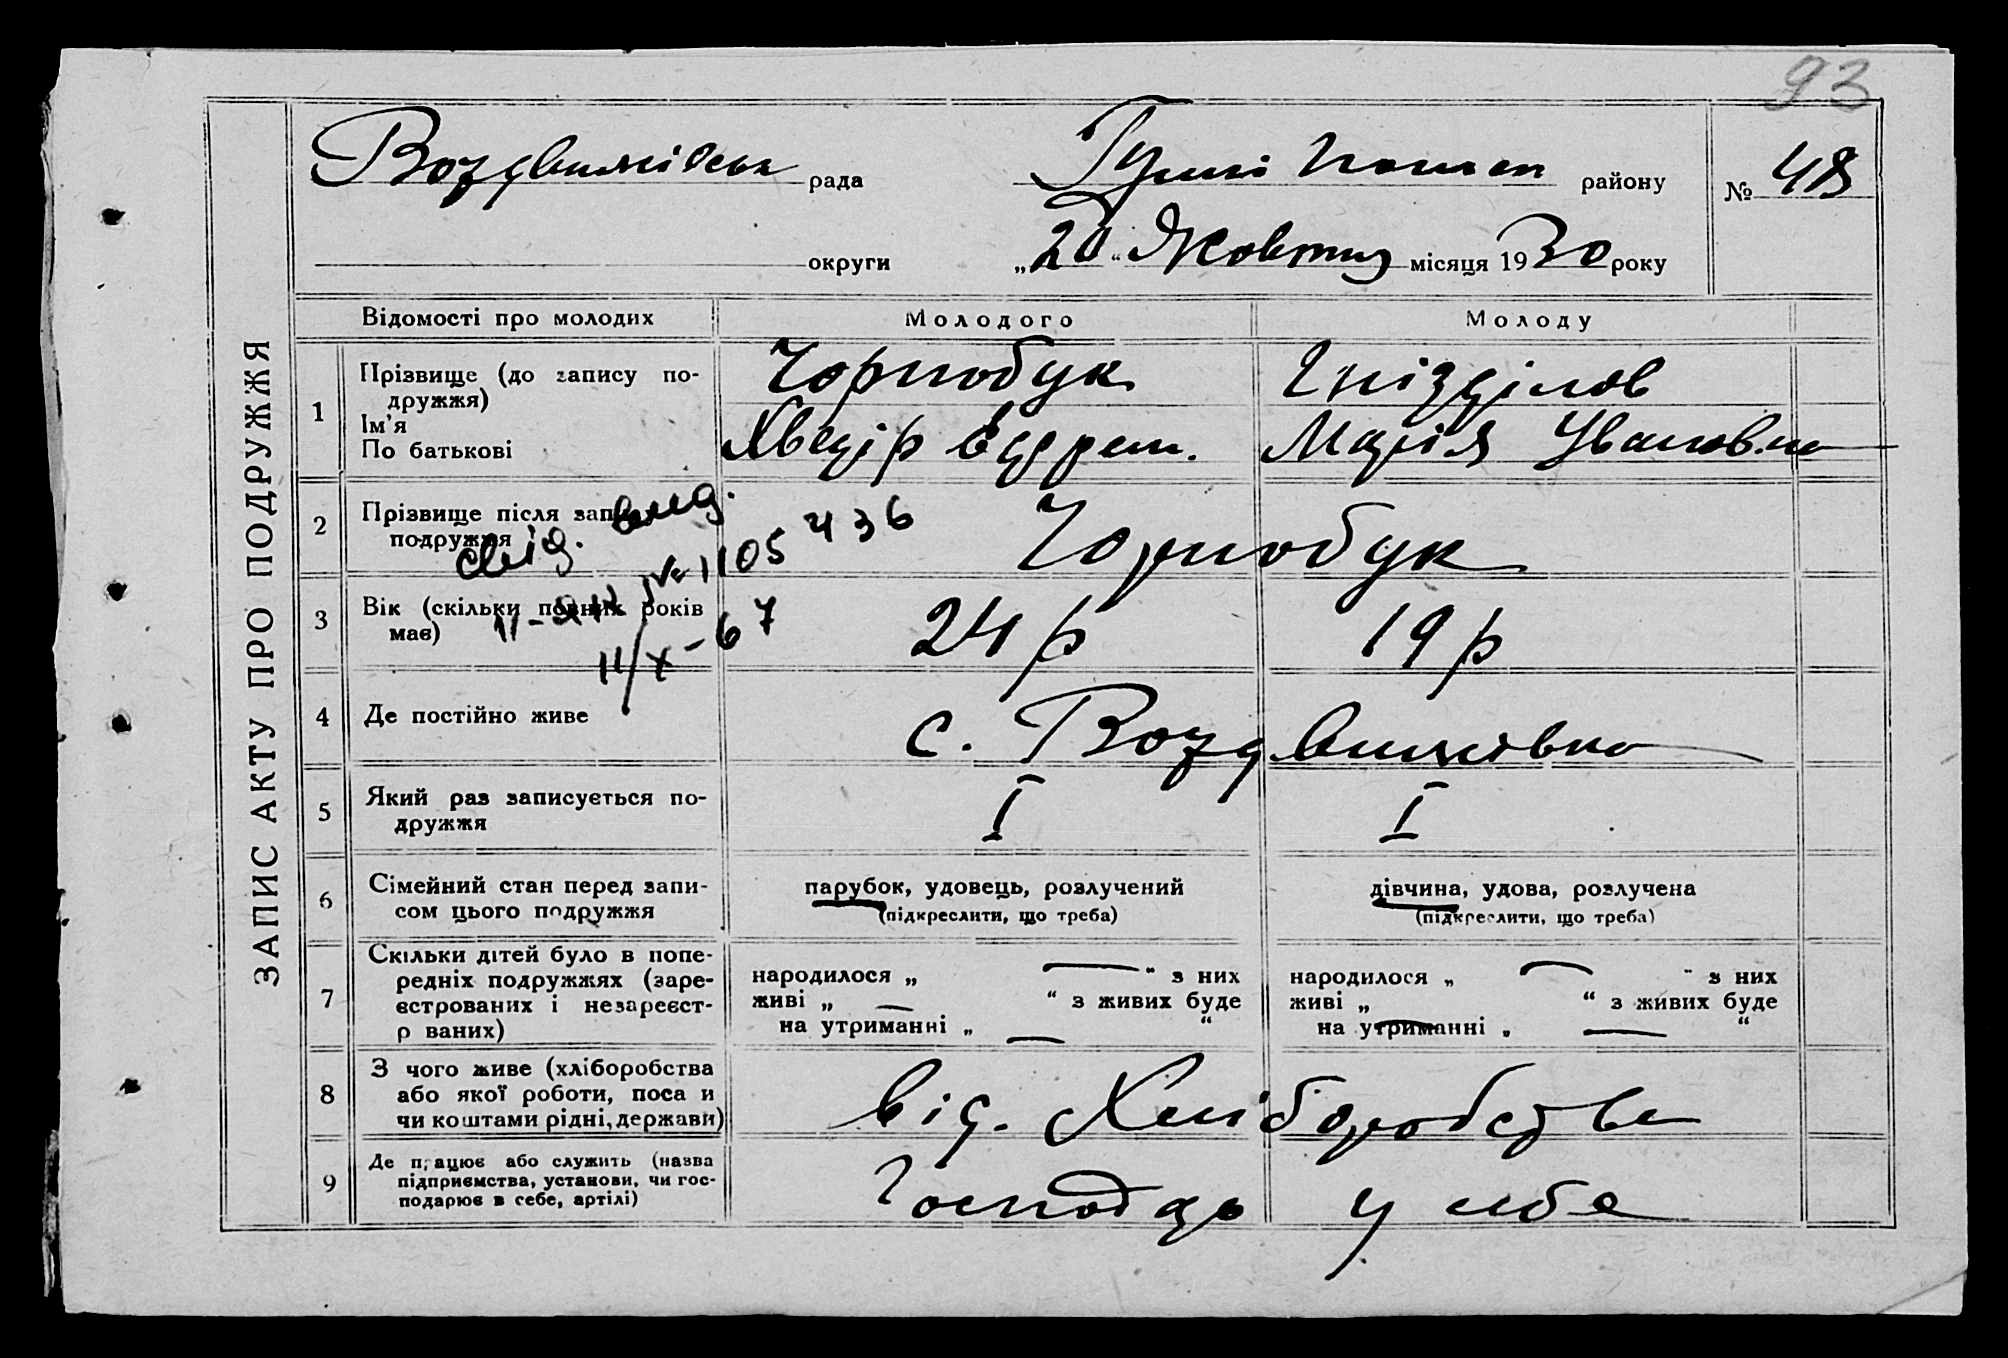 93
Воздвижівська рада Гуляй Польськ району № 48
округи „20“ Жовтня місяця 1930 року
ЗАПИС АКТУ ПРО ПОДРУЖЖЯ
Відомості про молодих Молодого Молоду
1 Прізвище (до запису по-
дружжя) Чорнобук Гнізділов
Ім'я
По батькові Хведір Марія Івановна
2 Прізвище після запису
подружжя Чорнобук
свід. вид.
№ 1105436
11/X-67
3 Вік (скільки повних років
має) 24 р 19 р
4 Де постійно живе с. Воздвижівка
5 Який раз записується по-
дружжя I I
6 Сімейний стан перед запи-
сом цього подружжя
парубок, удовець, розлучений
(підкреслити, що треба)
дівчина, удова, розлучена
(підкреслити, що треба)
7 Скільки дітей було в попе-
редніх подружжях (заре-
єстрованих і незареєст-
р ваних)
народилося „ — “ з них
живі „ — “ з живих буде
на утриманні „ — “
народилося „ — “ з них
живі „ — “ з живих буде
на утриманні „ — “
8 З чого живе (хліборобства
або якої роботи, поса и
чи коштами рідні, держави)
від. Хліборобства
9 Де працює або служить (назва
підприємства, установи, чи гос-
подарює в себе, артілі)
Господар у себе